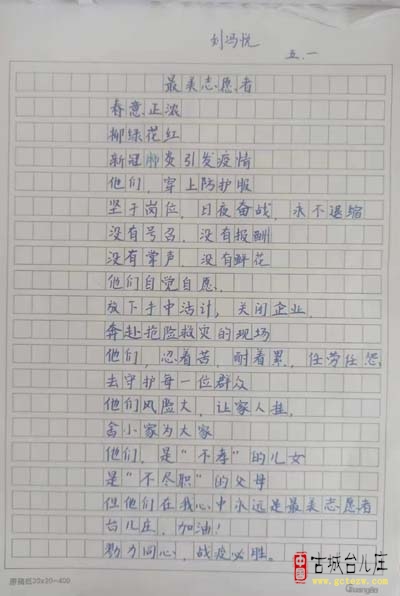 刘冯悦
五.一
最美志愿者
春意正浓
柳绿花红
新冠肺炎引发疫情
他们，穿上防护服
坚于岗位，日夜奋战，永不退缩
没有号召，没有报酬
没有掌声，没有鲜花
他们自觉自愿、
放下手中活计，关闭企业，
奔赴抢险救灾的现场
他们，忍着苦，耐着累，任劳任怨，
去守护每一位群众
他们风险大，让家人挂，
舍小家为大家
他们，是“不孝”的儿女
是“不尽职”的父母
但他们在我心中永远是最美志愿者
台儿庄，加油！
勠力同心，战疫必胜。
原稿纸20x20=400
中国
古城台儿庄
www.gctezw.com
Guangbo